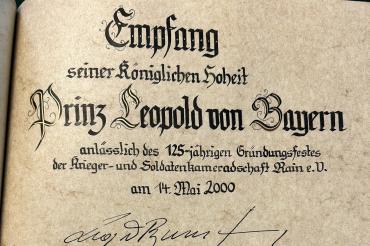 Empfang
seiner Königlichen Hoheit
Prinz Leopold von Bayern
anlässlich des 125-jährigen Gründungsfestes
der Krieger- und Soldatenkameradschaft Rain e.V.
am 14. Mai 2000